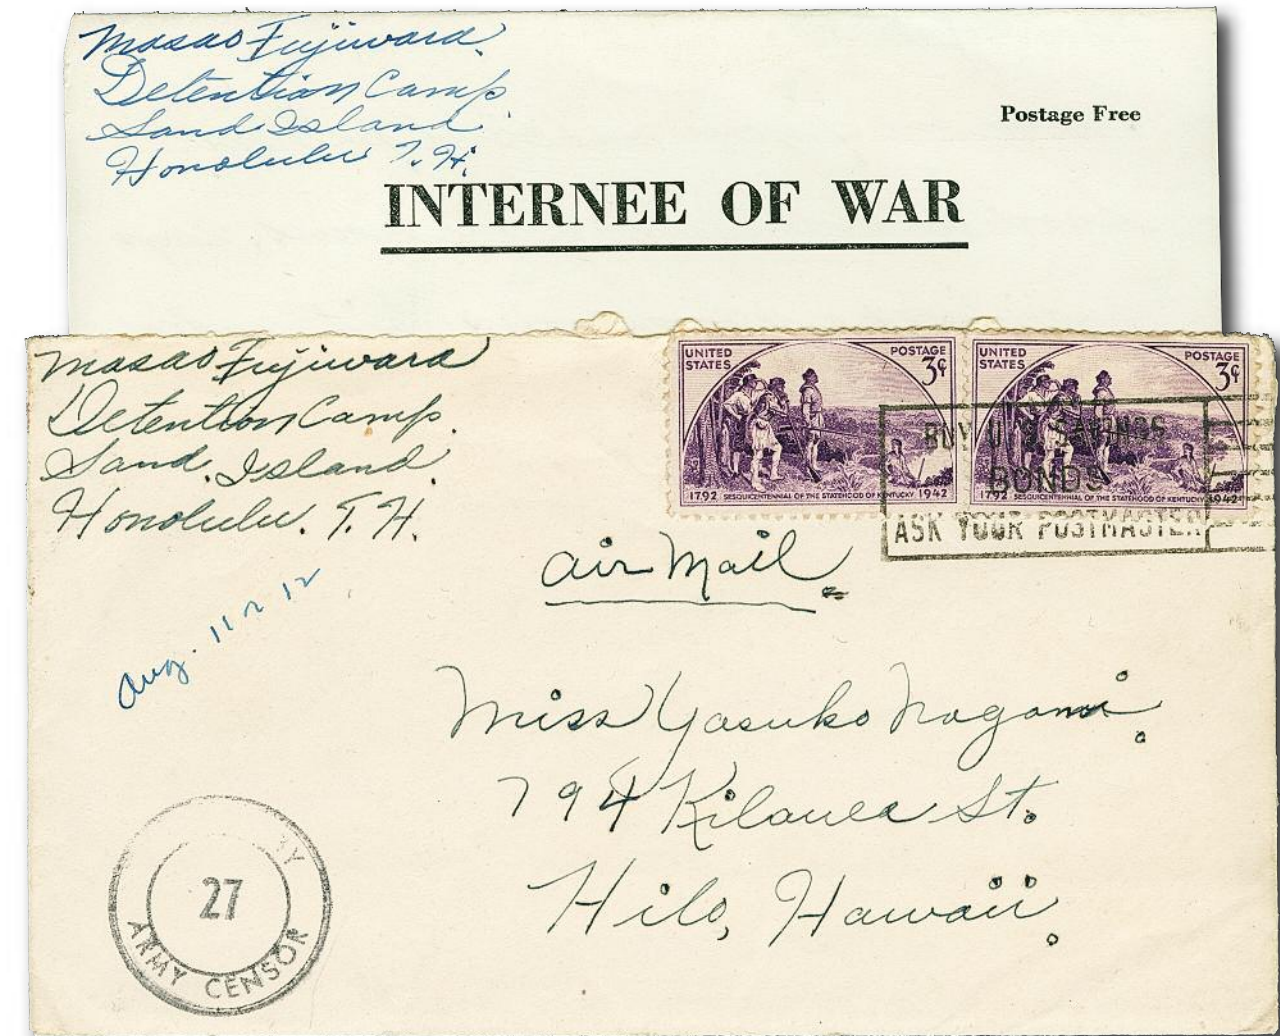 Masao Fujiwara.
Detention Camp.
Sand Island.
Honolulu T.H.
Postage Free
INTERNEE OF WAR
Masao Fujiwara
Detention Camp.
Sand Island.
Honolulu. T.H.
UNITED STATES POSTAGE 3¢
1792 SESQUICENTENNIAL OF THE STATEHOOD OF KENTUCKY 1942
UNITED STATES POSTAGE 3¢
1792 SESQUICENTENNIAL OF THE STATEHOOD OF KENTUCKY 1942
BUY U.S. SAVINGS
BONDS
ASK YOUR POSTMASTER
Air Mail
Aug. 11
Miss Yasuko Nogami.
794 Kilauea St.
Hilo, Hawaii.
27
ARMY CENSOR